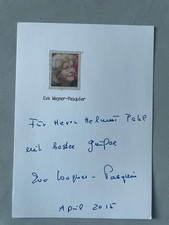 Eva Wagner-Pasquier
Für Herrn Helmut Pabl
mit besten Grüßen
Eva Wagner-Pasquier
April 2015